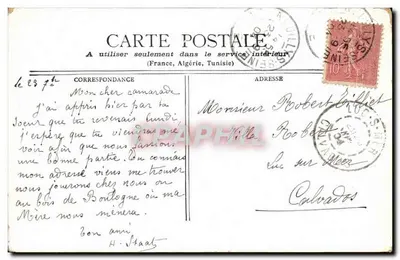 CARTE POSTALE
A utiliser seulement dans le service intérieur
(France, Algérie, Tunisie)
CORRESPONDANCE
ADRESSE
le 23 7bre
Mon cher camarade
j'ai appris hier par ta
soeur que tu revenais lundi,
j'espère que tu viendras me
voir afin que nous fassions
une bonne partie. Tu connais
mon adresse viens me trouver
nous jouerons chez nous ou
au bois de Boulogne où ma
Mère nous mènera.
ton ami
H. Staat
Monsieur Robert
Villa Robert
Luc sur Mer
Calvados